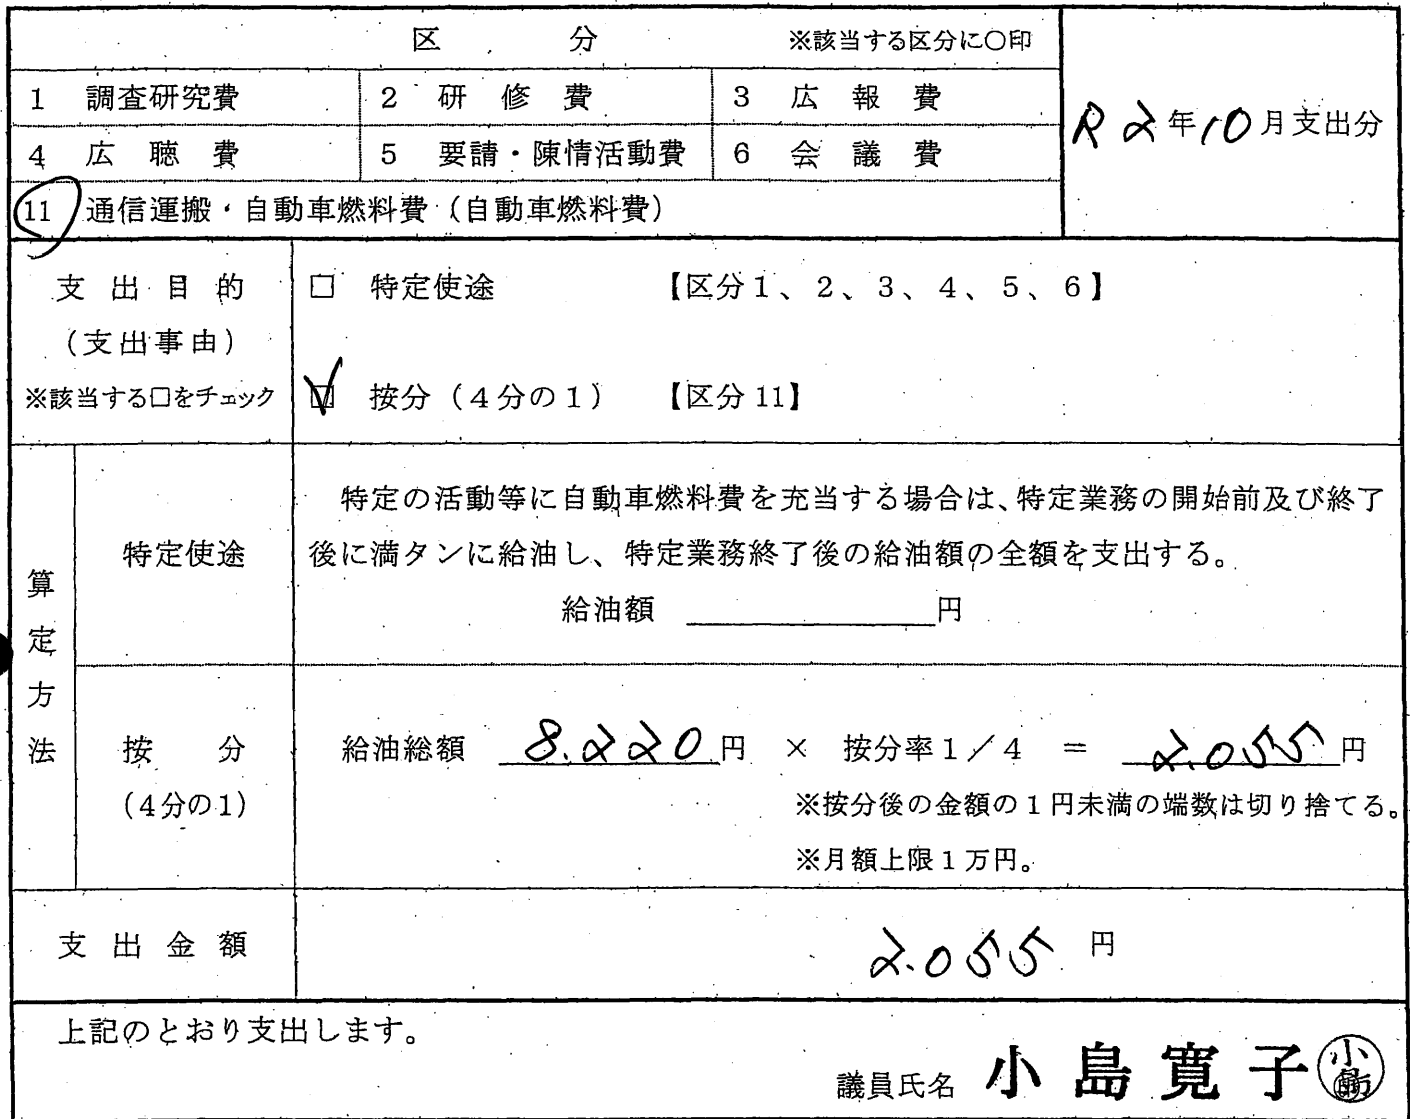 区 分 ※該当する区分に○印
1 調査研究費 2 研修費 3 広報費
R2年10月支出分
4 広聴費 5 要請・陳情活動費 6 会議費
11 通信運搬・自動車燃料費（自動車燃料費）
支出目的
（支出事由）
※該当する□をチェック
□ 特定使途 【区分1、2、3、4、5、6】
☑ 按分（4分の1） 【区分11】
算定方法
特定使途
特定の活動等に自動車燃料費を充当する場合は、特定業務の開始前及び終了
後に満タンに給油し、特定業務終了後の給油額の全額を支出する。
給油額 ＿＿＿＿円
按 分
（4分の1）
給油総額 8.220円 × 按分率1／4 ＝ 2.055円
※按分後の金額の1円未満の端数は切り捨てる。
※月額上限1万円。
支出金額 2.055円
上記のとおり支出します。
議員氏名 小島寛子